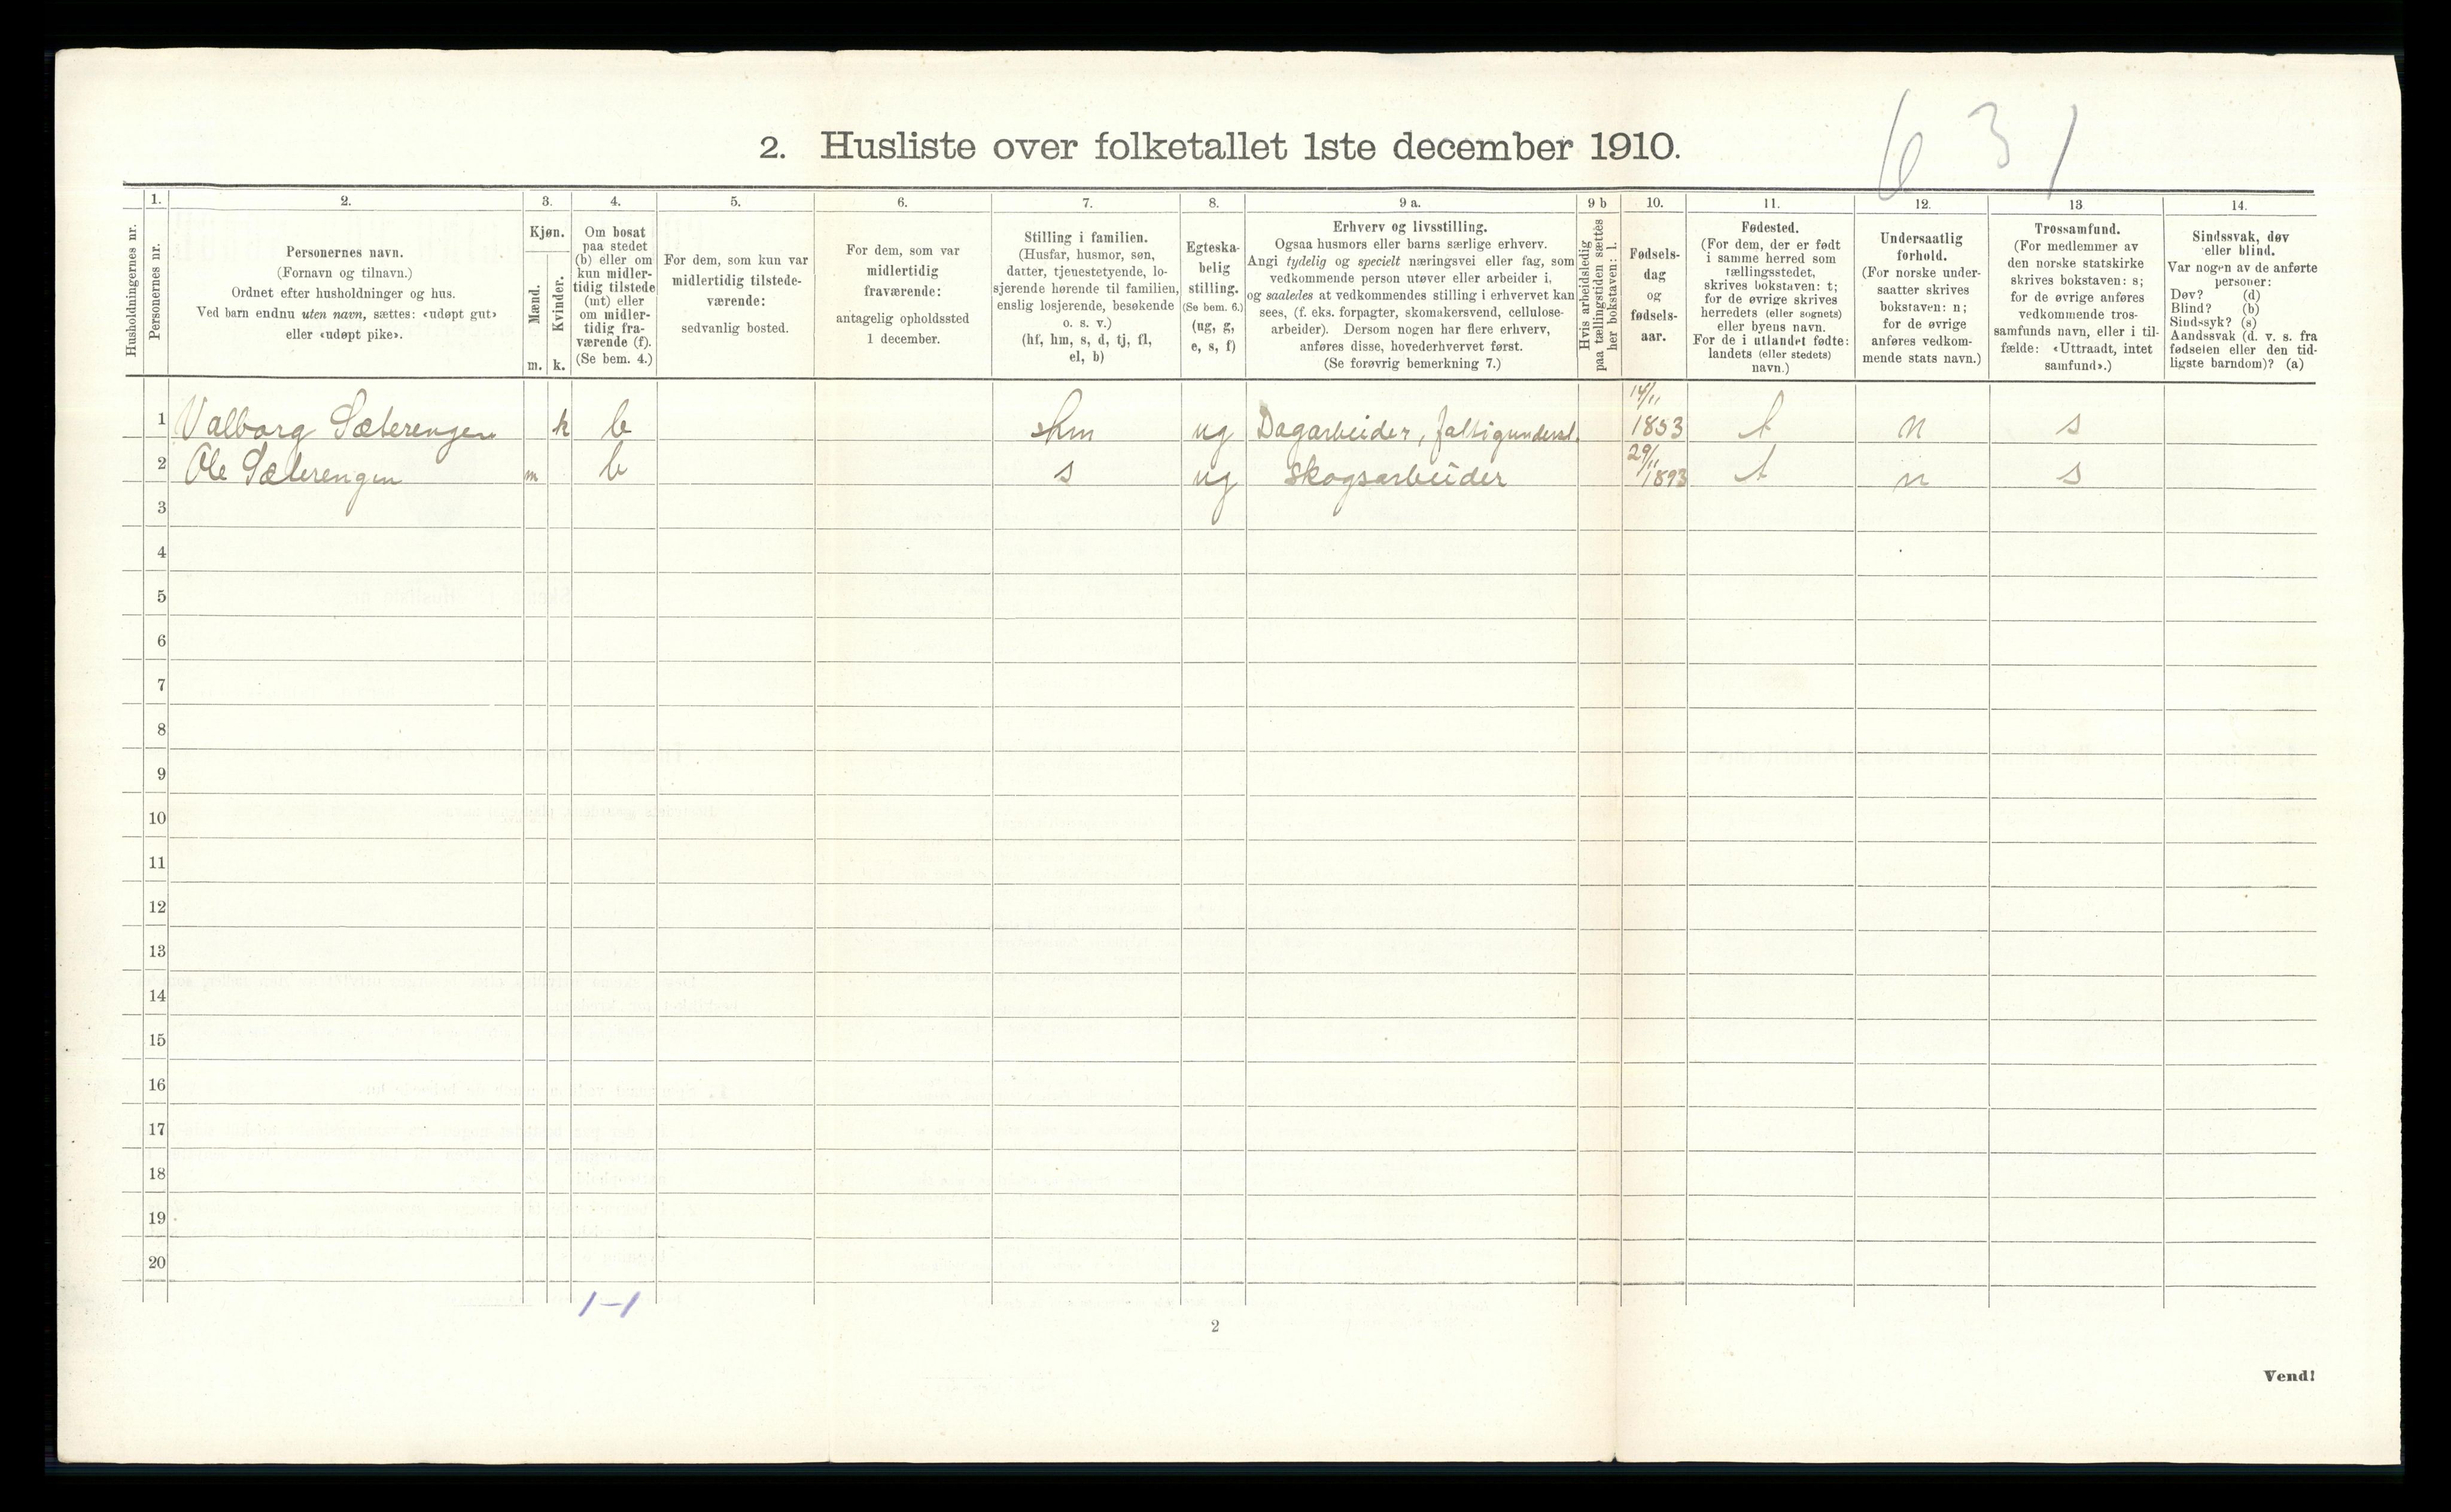 631
2. Husliste over folketallet 1ste december 1910.
Husholdningernes nr.
1.
Personernes nr.
2.
Personernes navn.
(Fornavn og tilnavn.)
Ordnet efter husholdninger og hus.
Ved barn endnu uten navn, sættes: «udøpt gut»
eller «udøpt pike».
3.
Kjøn.
Mænd.
Kvinder.
m. k.
4.
Om bosat
paa stedet
(b) eller om
kun midler-
tidig tilstede
(mt) eller
om midler-
tidig fra-
værende (f).
(Se bem. 4.)
5.
For dem, som kun var
midlertidig tilstede-
værende:
sedvanlig bosted.
6.
For dem, som var
midlertidig
fraværende:
antagelig opholdssted
1 december.
7.
Stilling i familien.
(Husfar, husmor, søn,
datter, tjenestetyende, lo-
sjerende hørende til familien,
enslig losjerende, besøkende
o. s. v.)
(hf, hm, s, d, tj, fl,
el, b)
8.
Egteska-
belig
stilling.
(Se bem. 6.)
(ug, g,
e, s, f)
9 a.
Erhverv og livsstilling.
Ogsaa husmors eller barns særlige erhverv.
Angi tydelig og specielt næringsvei eller fag, som
vedkommende person utøver eller arbeider i,
og saaledes at vedkommendes stilling i erhvervet kan
sees, (f. eks. forpagter, skomakersvend, cellulose-
arbeider). Dersom nogen har flere erhverv,
anføres disse, hovederhvervet først.
(Se forøvrig bemerkning 7.)
9 b
Hvis arbeidsledig
paa tællingstiden sættes
her bokstaven: l.
10.
Fødsels-
dag
og
fødsels-
aar.
11.
Fødested.
(For dem, der er født
i samme herred som
tællingsstedet,
skrives bokstaven: t;
for de øvrige skrives
herredets (eller sognets)
eller byens navn.
For de i utlandet fødte:
landets (eller stedets)
navn.)
12.
Undersaatlig
forhold.
(For norske under-
saatter skrives
bokstaven: n;
for de øvrige
anføres vedkom-
mende stats navn.)
13
Trossamfund.
(For medlemmer av
den norske statskirke
skrives bokstaven: s;
for de øvrige anføres
vedkommende tros-
samfunds navn, eller i til-
fælde: «Uttraadt, intet
samfund».)
14.
Sindssvak, døv
eller blind.
Var nogen av de anførte
personer:
Døv? (d)
Blind? (b)
Sindssyk? (s)
Aandssvak (d. v. s. fra
fødselen eller den tid-
ligste barndom)? (a)
1 Valborg Sæterengen k b hm ug Dagarbeider, fattigunderst. 14/11 1853 t n s
2 Ole Sæterengen m b s ug Skogsarbeider 29/11 1893 t n s
3
4
5
6
7
8
9
10
11
12
13
14
15
16
17
18
19
20
1-1
2
Vend!